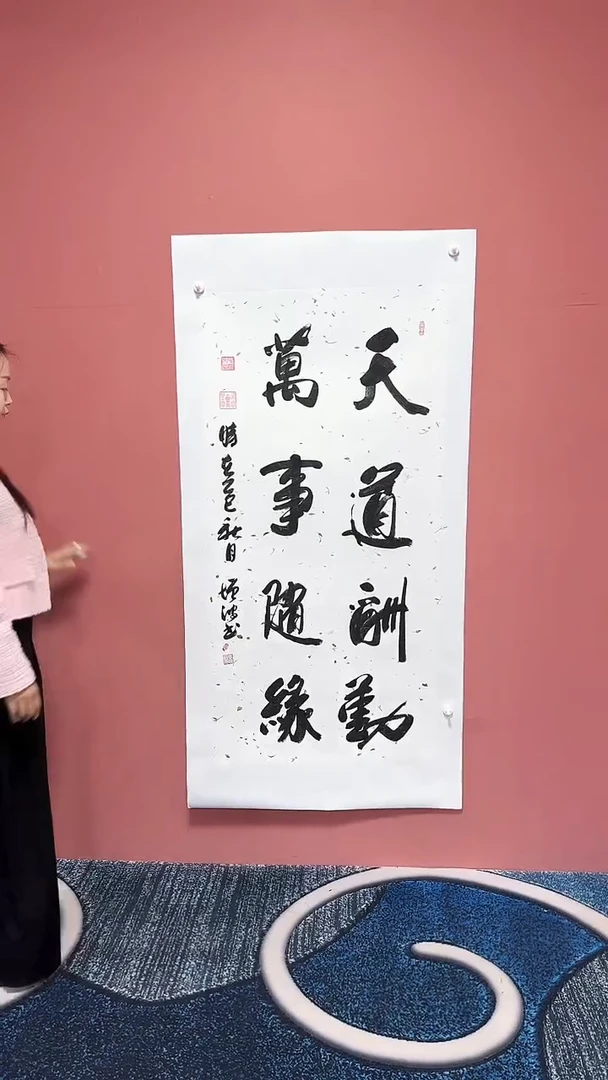 天道酬勤
萬事隨緣
時在乙巳秋月